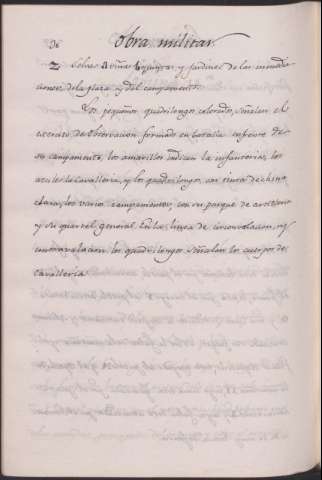 36
obra militar.
Z Selvas, viñas, y jardines de las inmedia-
ciones de la plaza, y del campamento.
Los pequeños quadrilongos colorados, señalan el
exercito de Observacion formado en batalla enfrente de
su campamento, los amarillos indican la infanteria, los
azules la Cavalleria, y los quadrilongos con tinta de china
clara, los varios campamentos, con su parque de artilleria
y su quartel general. En la linea de circunvalacion, y
contravalacion los quadrilongos señalan los cuerpos de
cavalleria.